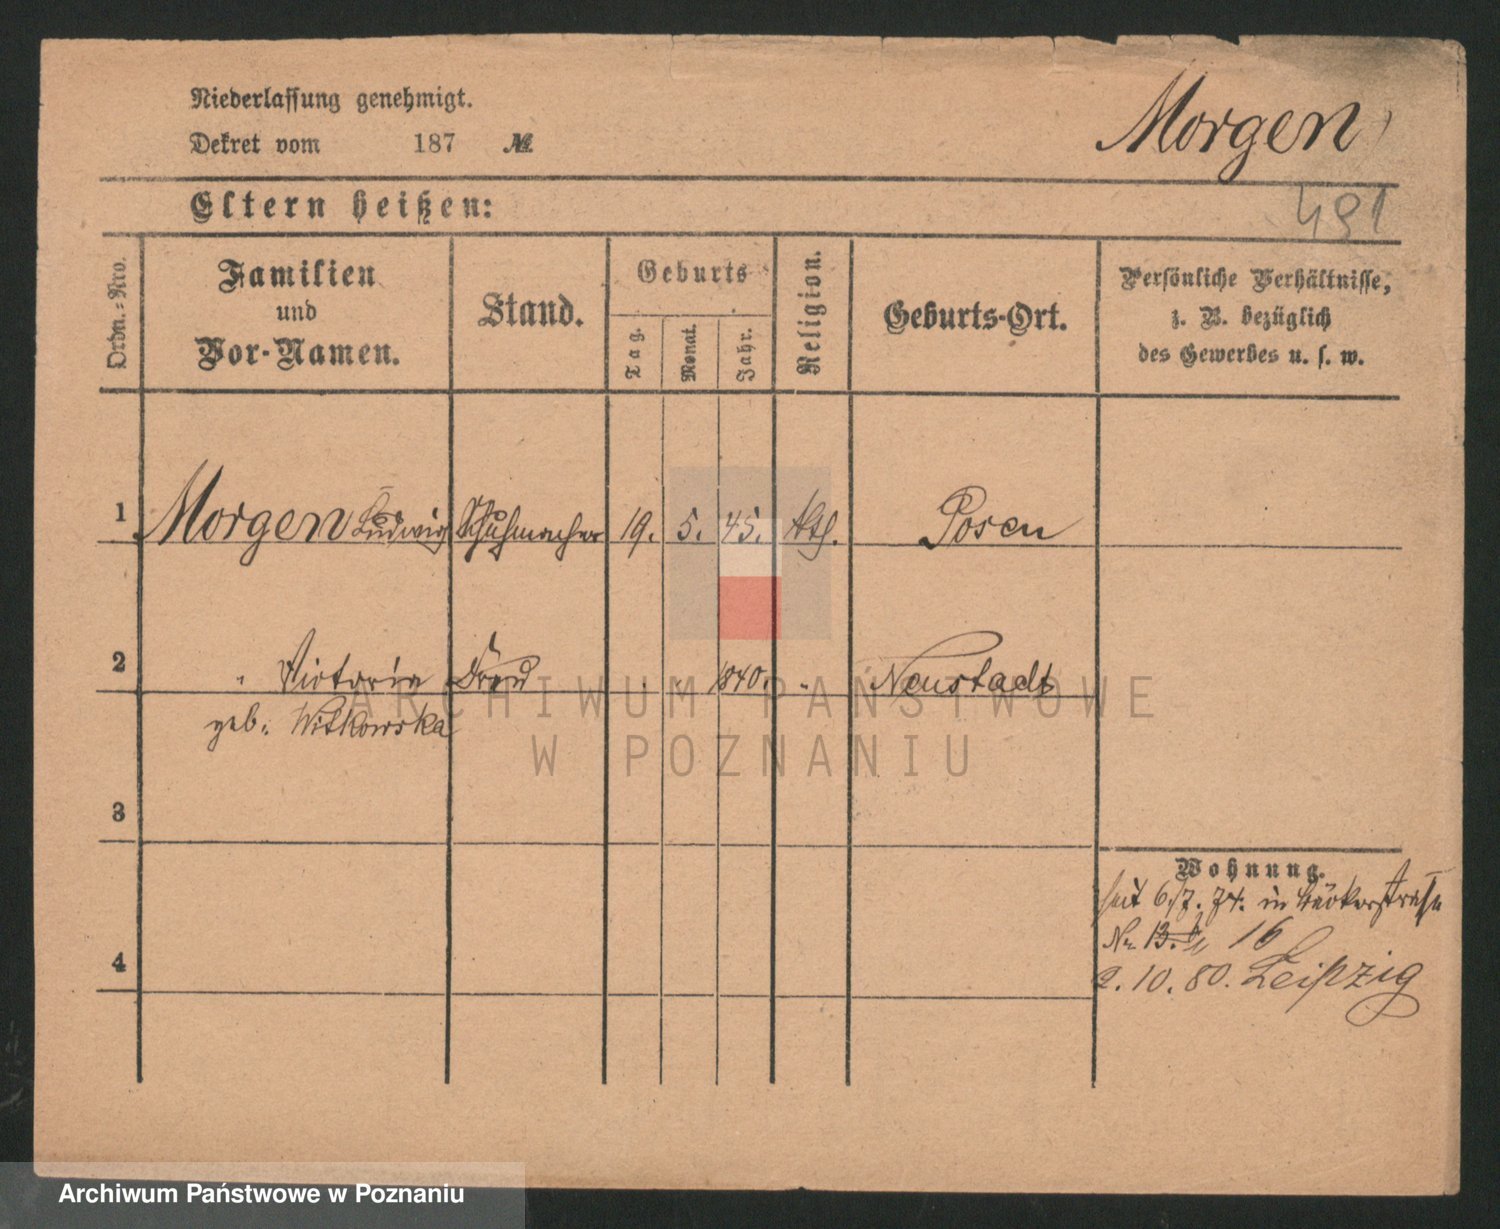 Niederlassung genehmigt.
Morgen
Dekret vom 187 №
Eltern heißen:
491
Ordn.-Nro.
Familien und Vor-Namen.
Stand.
Geburts
Tag.
Monat.
Jahr.
Religion.
Geburts-Ort.
Persönliche Verhältnisse,
z. B. bezüglich
des Gewerbes u. s. w.
1 Morgen Ludwig Schuhmacher 19. 5. 45. Kth. Posen
2 " Victoria Frau 1840. " Neustadt
geb. Witkowska
3
Wohnung.
seit 6./7. 74. in Bäckerstraße
No 13. 16
4
2. 10. 80. Leipzig
ARCHIWUM PAŃSTWOWE
W POZNANIU
Archiwum Państwowe w Poznaniu